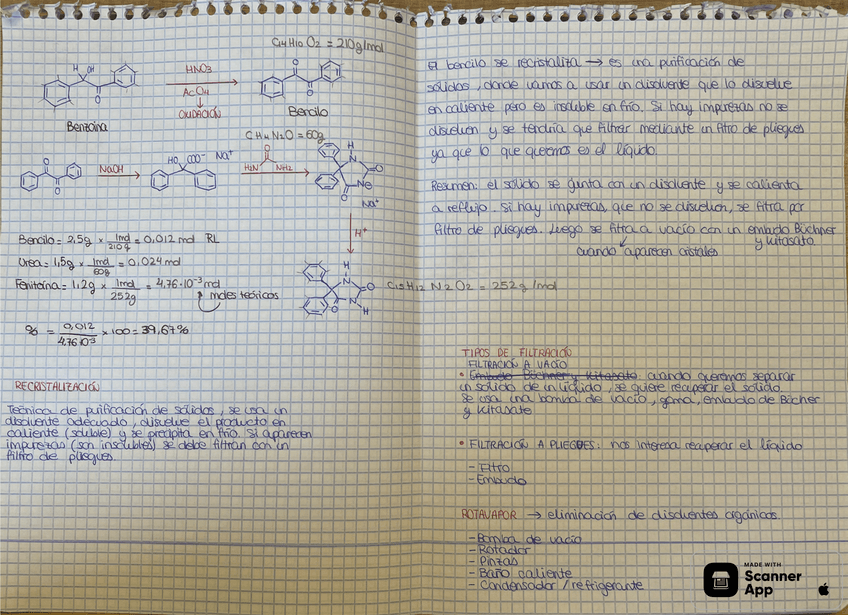 C14H10O2 = 210g/mol
H OH
O
HNO3
AcOH
OXIDACIÓN
O
O
Benzoina
Bencilo
CH4N2O = 60g
O
O
NaOH
HO COO- Na+
O
H2N NH2
H
N
O
O
Ne
Na+
H+
Bencilo = 2,5g × 1mol/210g = 0,012 mol RL
Urea = 1,5g × 1mol/60g = 0,024 mol
Fenitoína = 1,2g × 1mol/252g = 4,76·10-3 mol
moles teóricos
H
N
O
O
N
H
C15H12N2O2 = 252g/mol
% = 0,012/4,76·10-3 × 100 = 39,67%
RECRISTALIZACIÓN
Técnica de purificación de sólidos, se usa un
disolvente adecuado, disuelve el producto en
caliente (soluble) y se precipita en frío. Si aparecen
impurezas (son insolubles) se debe filtrar con un
filtro de pliegues.
El bencilo se recristaliza → es una purificación de
sólidos, donde vamos a usar un disolvente que lo disuelve
en caliente pero es insoluble en frío. Si hay impurezas no se
disuelven y se tendría que filtrar mediante un filtro de pliegues
ya que lo que queremos es el líquido.
Resumen: el sólido se junta con un disolvente y se calienta
a reflujo. Si hay impurezas, que no se disuelven, se filtra por
filtro de pliegues. Luego se filtra a vacío con un embudo Büchner
y kitasato.
cuando aparecen cristales
TIPOS DE FILTRACIÓN
FILTRACIÓN A VACÍO
• Embudo Büchner y kitasato: cuando queremos separar
un sólido de un líquido, se quiere recuperar el sólido
se usa una bomba de vacío, goma, embudo de Bücher
y kitasate
• FILTRACIÓN A PLIEGUES: nos interesa recuperar el líquido
- Filtro
- Embudo
ROTAVAPOR → eliminación de disolventes orgánicos.
- Bomba de vacío
- Rotador
- Pinzas
- Baño caliente
- Condensador / refrigerante
MADE WITH
Scanner
App